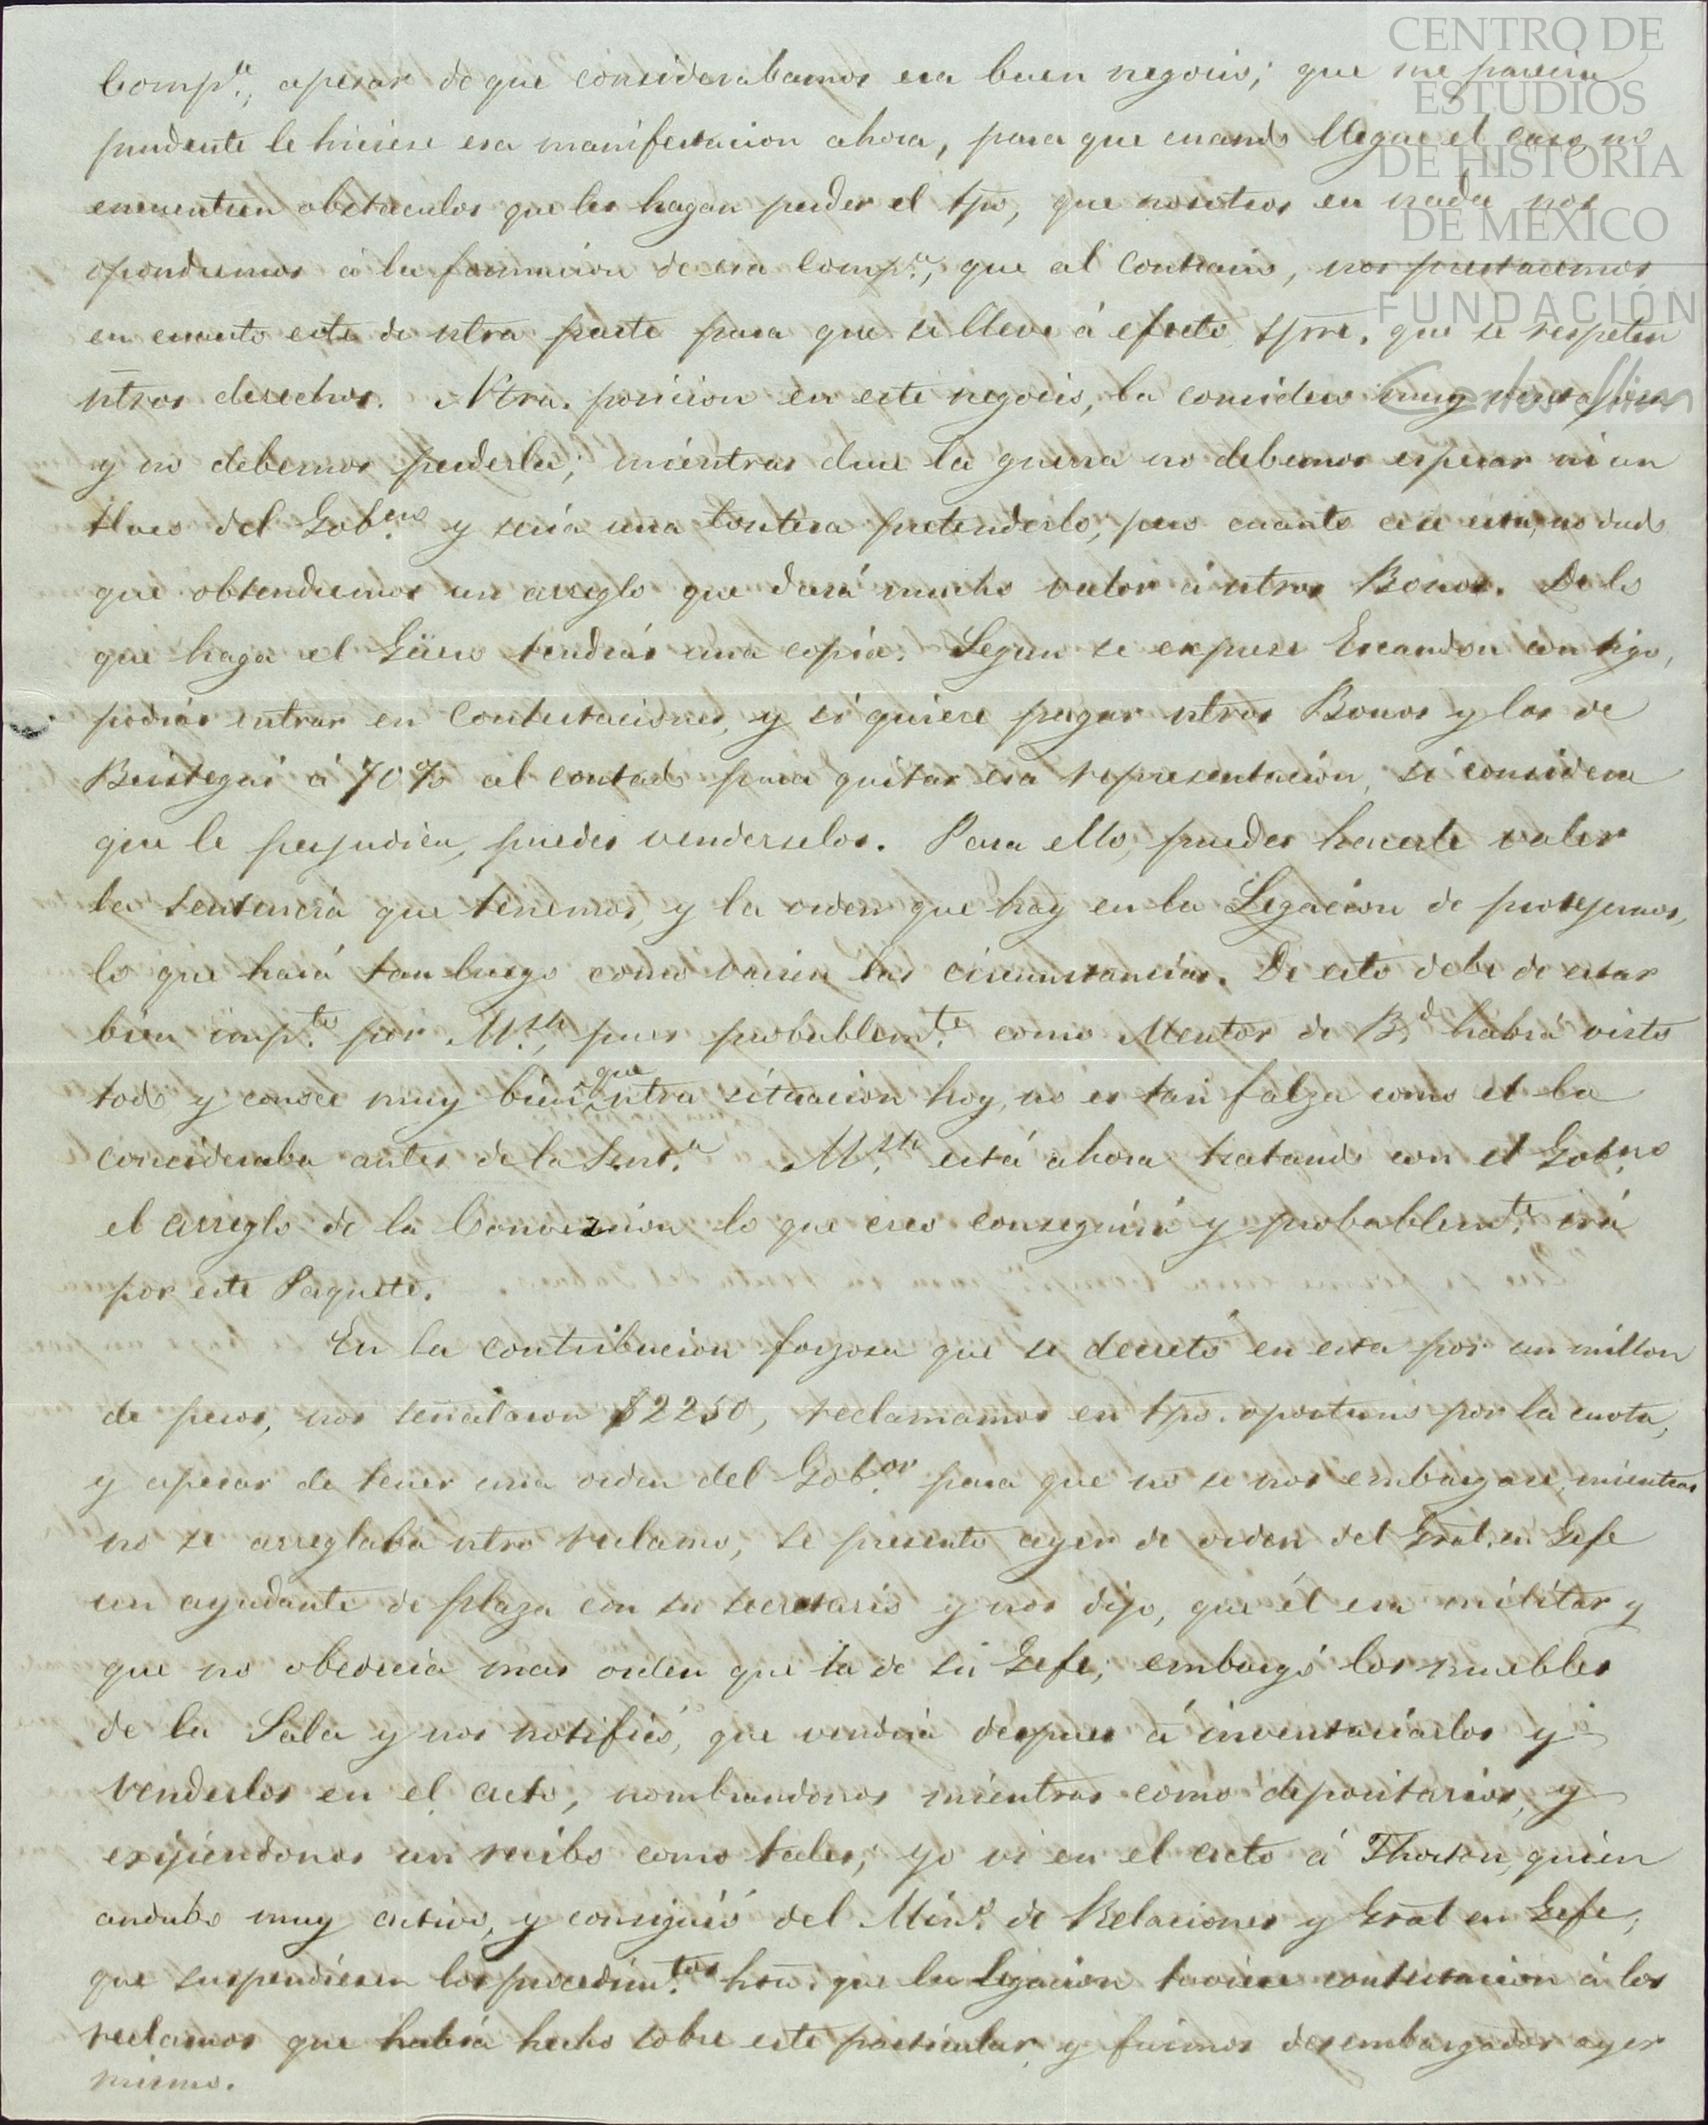 CENTRO DE
ESTUDIOS
DE HISTORIA
DE MÉXICO
FUNDACIÓN
Carlos Slim
Comp.ª, apesar de que considerabamos era buen negocio; que me parecia
prudente le hiciese esa manifestacion ahora, para que cuando llegue el caso no
encuentren obstaculos que les hagan perder el tpo, que nosotros en nada nos
opondremos á la formacion de esa Comp.ª, que al contrario, nos prestaremos
en cuanto esté de ntra parte para que se lleve á efecto, spre. que se respeten
ntros derechos. Ntra. posicion en este negocio, la considero muy ventajosa
y no debemos perderla; mientras dure la guerra no debemos esperar ni un
tlaco del Gob.no y seria una tontera pretenderlo, pero cuanto cese esta, no dudo
que obtendremos un arreglo que dará mucho valor á ntros Bonos. De lo
que haga el Güero tendrás una copia. Segun se exprese Escandon contigo,
podrás entrar en contestaciones, y si quiere pagar ntros Bonos y los de
Beistegui á 70% al contado para quitar esa representacion, si considera
que le perjudica, puedes venderselos. Para ello, puedes hacerle valer
la sentencia que tenemos, y la orden que hay en la Legacion de protejernos,
lo que hará tan luego como varien las circunstancias. De esto debe de estar
bien imp.to por M.sh, pues probablem.te como Mentor de B.d habrá visto
todo y conoce muy bien que ntra situacion hoy, no es tan falza como el la
concideraba antes de la Sent.ª M.sh está ahora tratando con el Gob.no
el arreglo de la Convencion lo que creo conseguirá y probablem.te irá
por este Paquete.
En la contribucion forzosa que se decretó en esta por un millon
de pesos, nos señalaron $2250, reclamamos en tpo. oportuno por la cuota,
y apesar de tener una orden del Gob.or para que no se nos embargase, mientras
no se arreglaba ntro reclamo, se presentó ayer de orden del Gral. en Gefe
un ayudante de plaza con su secretario y nos dijo, que él era militar y
que no obedecia mas orden que la de su Gefe; embargó los muebles
de la Sala y nos notificó, que vendria despues á inventariarlos y
venderlos en el acto, nombrandonos mientras como depositarios, y
exijiendonos un recibo como tales; yo vi en el acto á Thorton, quien
andubo muy activo, y consiguió del Min.o de Relaciones y Gral en Gefe,
que suspendiesen los procedim.tos hta. que la Legacion tuviese contestacion á los
reclamos que habia hecho sobre este particular, y fuimos desembargados ayer
mismo.